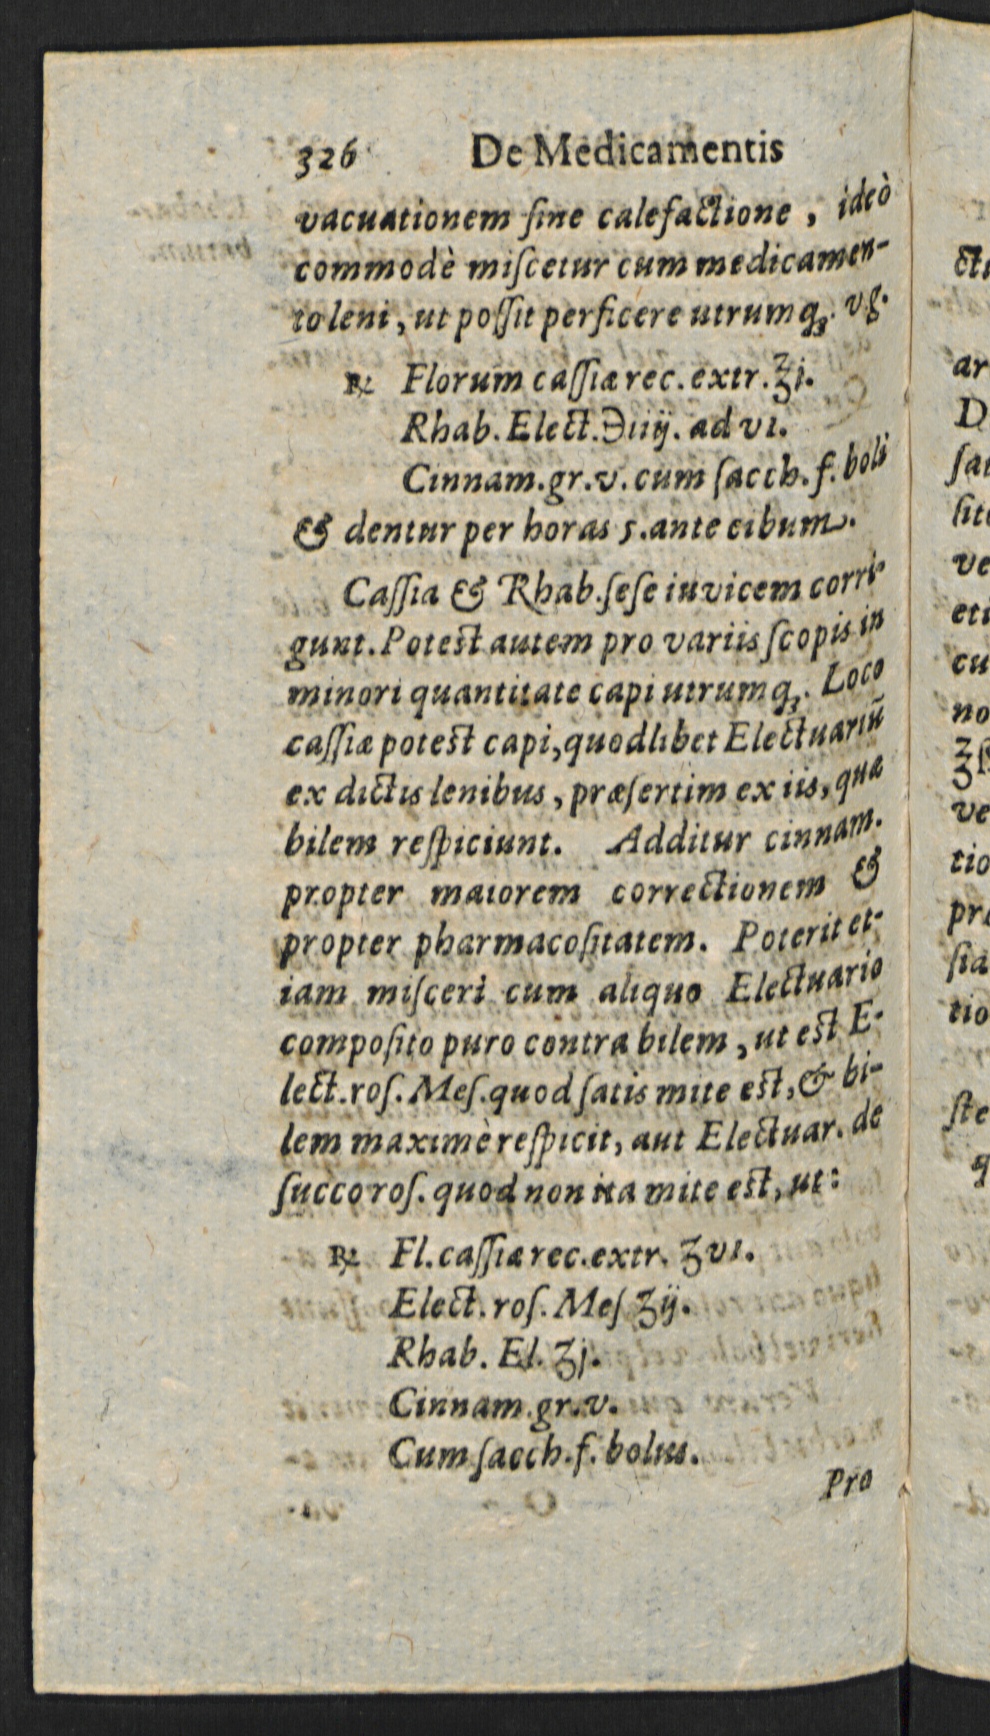 326 De Medicamentis
vacuationem ſine calefactione, ideò
commodè miſcetur cum medicamen-
to leni, ut poſſit perficere utrumqꝫ. vg.
℞ Florum caſſiæ rec. extr. ℥j.
Rhab. Elect. ℈iiij. ad vi.
Cinnam. gr. v. cum ſacch. f. boli
& dentur per horas 5. ante cibum.
Caſſia & Rhab. ſeſe invicem corri-
gunt. Potest autem pro variis ſcopis in
minori quantitate capi utrumqꝫ. Loco
caſſiæ potest capi, quodlibet Electuariũ
ex dictis lenibus, præſertim ex iis, quæ
bilem reſpiciunt. Additur cinnam.
propter maiorem correctionem &
propter pharmacoſitatem. Poterit et-
iam miſceri cum aliquo Electuario
compoſito puro contra bilem, ut est E-
lect. roſ. Meſ. quod ſatis mite est, & bi-
lem maximè reſpicit, aut Electuar. de
ſucco roſ. quod non ita mite est, ut:
℞ Fl. caſſiæ rec. extr. ʒvi.
Elect. roſ. Meſ ʒij.
Rhab. El. ʒj.
Cinnam. gr. v.
Cum ſacch. f. bolus.
Pro